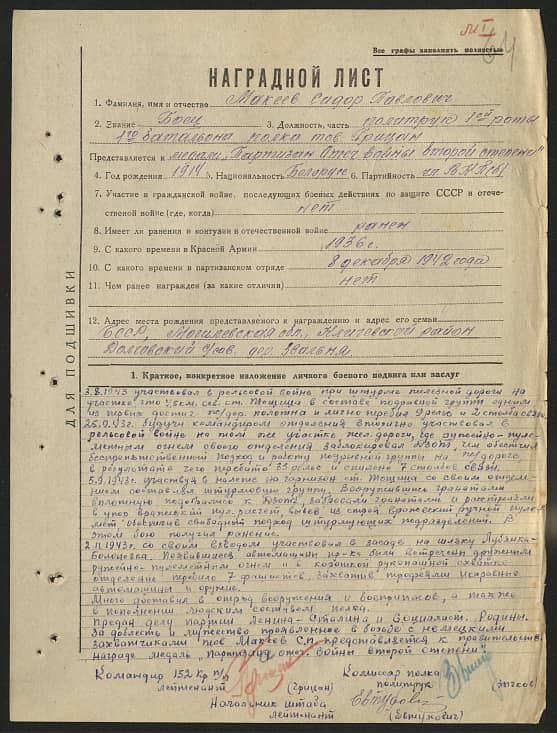 Все графы заполнять полностью
НАГРАДНОЙ ЛИСТ
1. Фамилия, имя и отчество Макеев Сидор Павлович
2. Звание Боец 3. Должность, часть политрук 1ой роты
1го батальона полка тов. Грицан
Представляется к медали „Партизан Отеч войны второй степени"
4. Год рождения 5. Национальность Белорус 6. Партийность ВКП(б)
7. Участие в гражданской войне, последующих боевых действиях по защите СССР и отече-
ственной войне (где, когда) нет
8. Имеет ли ранения и контузии в отечественной войне ранен
9. С какого времени в Красной Армии 1936 г.
10. С какого времени в партизанском отряде 8 декабря 1942 года
11. Чем ранее награжден (за какие отличия) нет
12. Адрес места рождения представляемого к награждению и адрес его семьи
БССР, Могилевская обл., Кличевский район
Долговский с/сов. дер. Вальня
ДЛЯ ПОДШИВКИ
1. Краткое, конкретное изложение личного боевого подвига или заслуг
3.8.1943 участвовал в рельсовой войне при штурме железной дороги на
участке ст. Тощица, в составе подрывной группы одним
из первых достиг ж/дор. полотна и лично прервал 3 рельс и 2 столба связи
25.9.43г. Будучи командиром отделения вторично участвовал в
рельсовой войне на том же участке жел. дороги, где ружейно-пуле-
метным огнем своего отделения заблокировал ДЗОТ, чем обеспечил
беспрепятственный подход и работу подрывной группы на ж/дороге,
в результате чего перебито 35 рельс и спилено 7 столбов связи.
5.9.1943г. участвуя в налете на гарнизон ст. Тощица со своим отделе-
нием составлял штурмовую группу. Вооружившись гранатами
вплотную подбился к ДЗОТу, забросали гранатами и расстреляли
в упор вражеский пул. расчет, выбив из строя вражеский ручной пуле-
мет обеспечив свободный подход штурмующих подразделений. В
этом бою получил ранение.
2.11.1943г. со своим взводом участвовал в засаде на шляху Лубянка-
Болоновка. Появившиеся автомашины пр-ка были встречены дружным
ружейно-пулеметным огнем и в короткой рукопашной схватке
отделение перебило 7 фашистов, захватив трофеями исправные
автомашины и оружие.
Много доставил в отряд вооружения и боеприпасов, а также
в пополнении людским составом полка.
Предан делу партии Ленина-Сталина и Социалист. Родины.
За доблесть и мужество проявленное в борьбе с немецкими
захватчиками тов Макеев С.П. представляется к правительств.
награде медаль „партизан отеч. войны второй степени"
Командир 152 кр п/п
лейтенант (Грицан)
Комиссар полка
политрук (Зычков)
Начальник штаба
лейтенант (Евтухович)